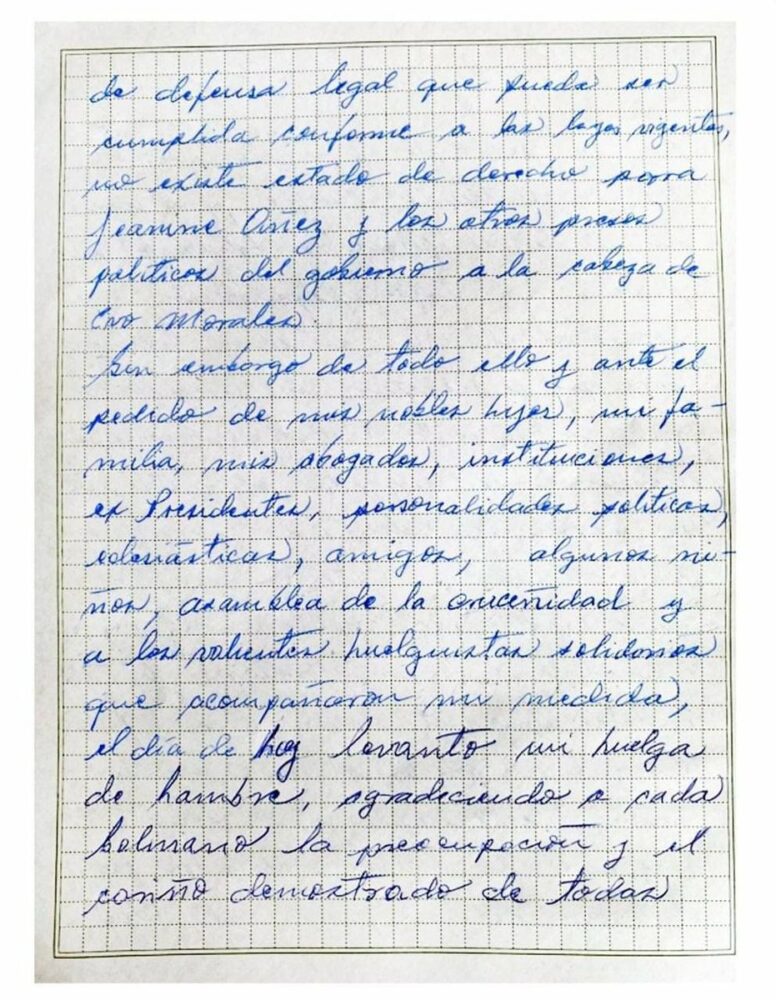 de defensa legal que pueda ser
cumplida conforme a las leyes vigentes,
no existe estado de derecho para
Jeanine Añez y los otros presos
políticos del gobierno a la cabeza de
Evo Morales.
Sin embargo de todo ello y ante el
pedido de mis nobles hijos, mi fa-
milia, mis abogados, instituciones,
ex Presidentes, personalidades políticas,
eclesiásticas, amigos, algunos ni-
ños, asamblea de la cruceñidad y
a los valientes huelguistas solidarios
que acompañaron mi medida,
el día de hoy levanto mi huelga
de hambre, agradeciendo a cada
boliviano la preocupación y el
cariño demostrado de todas